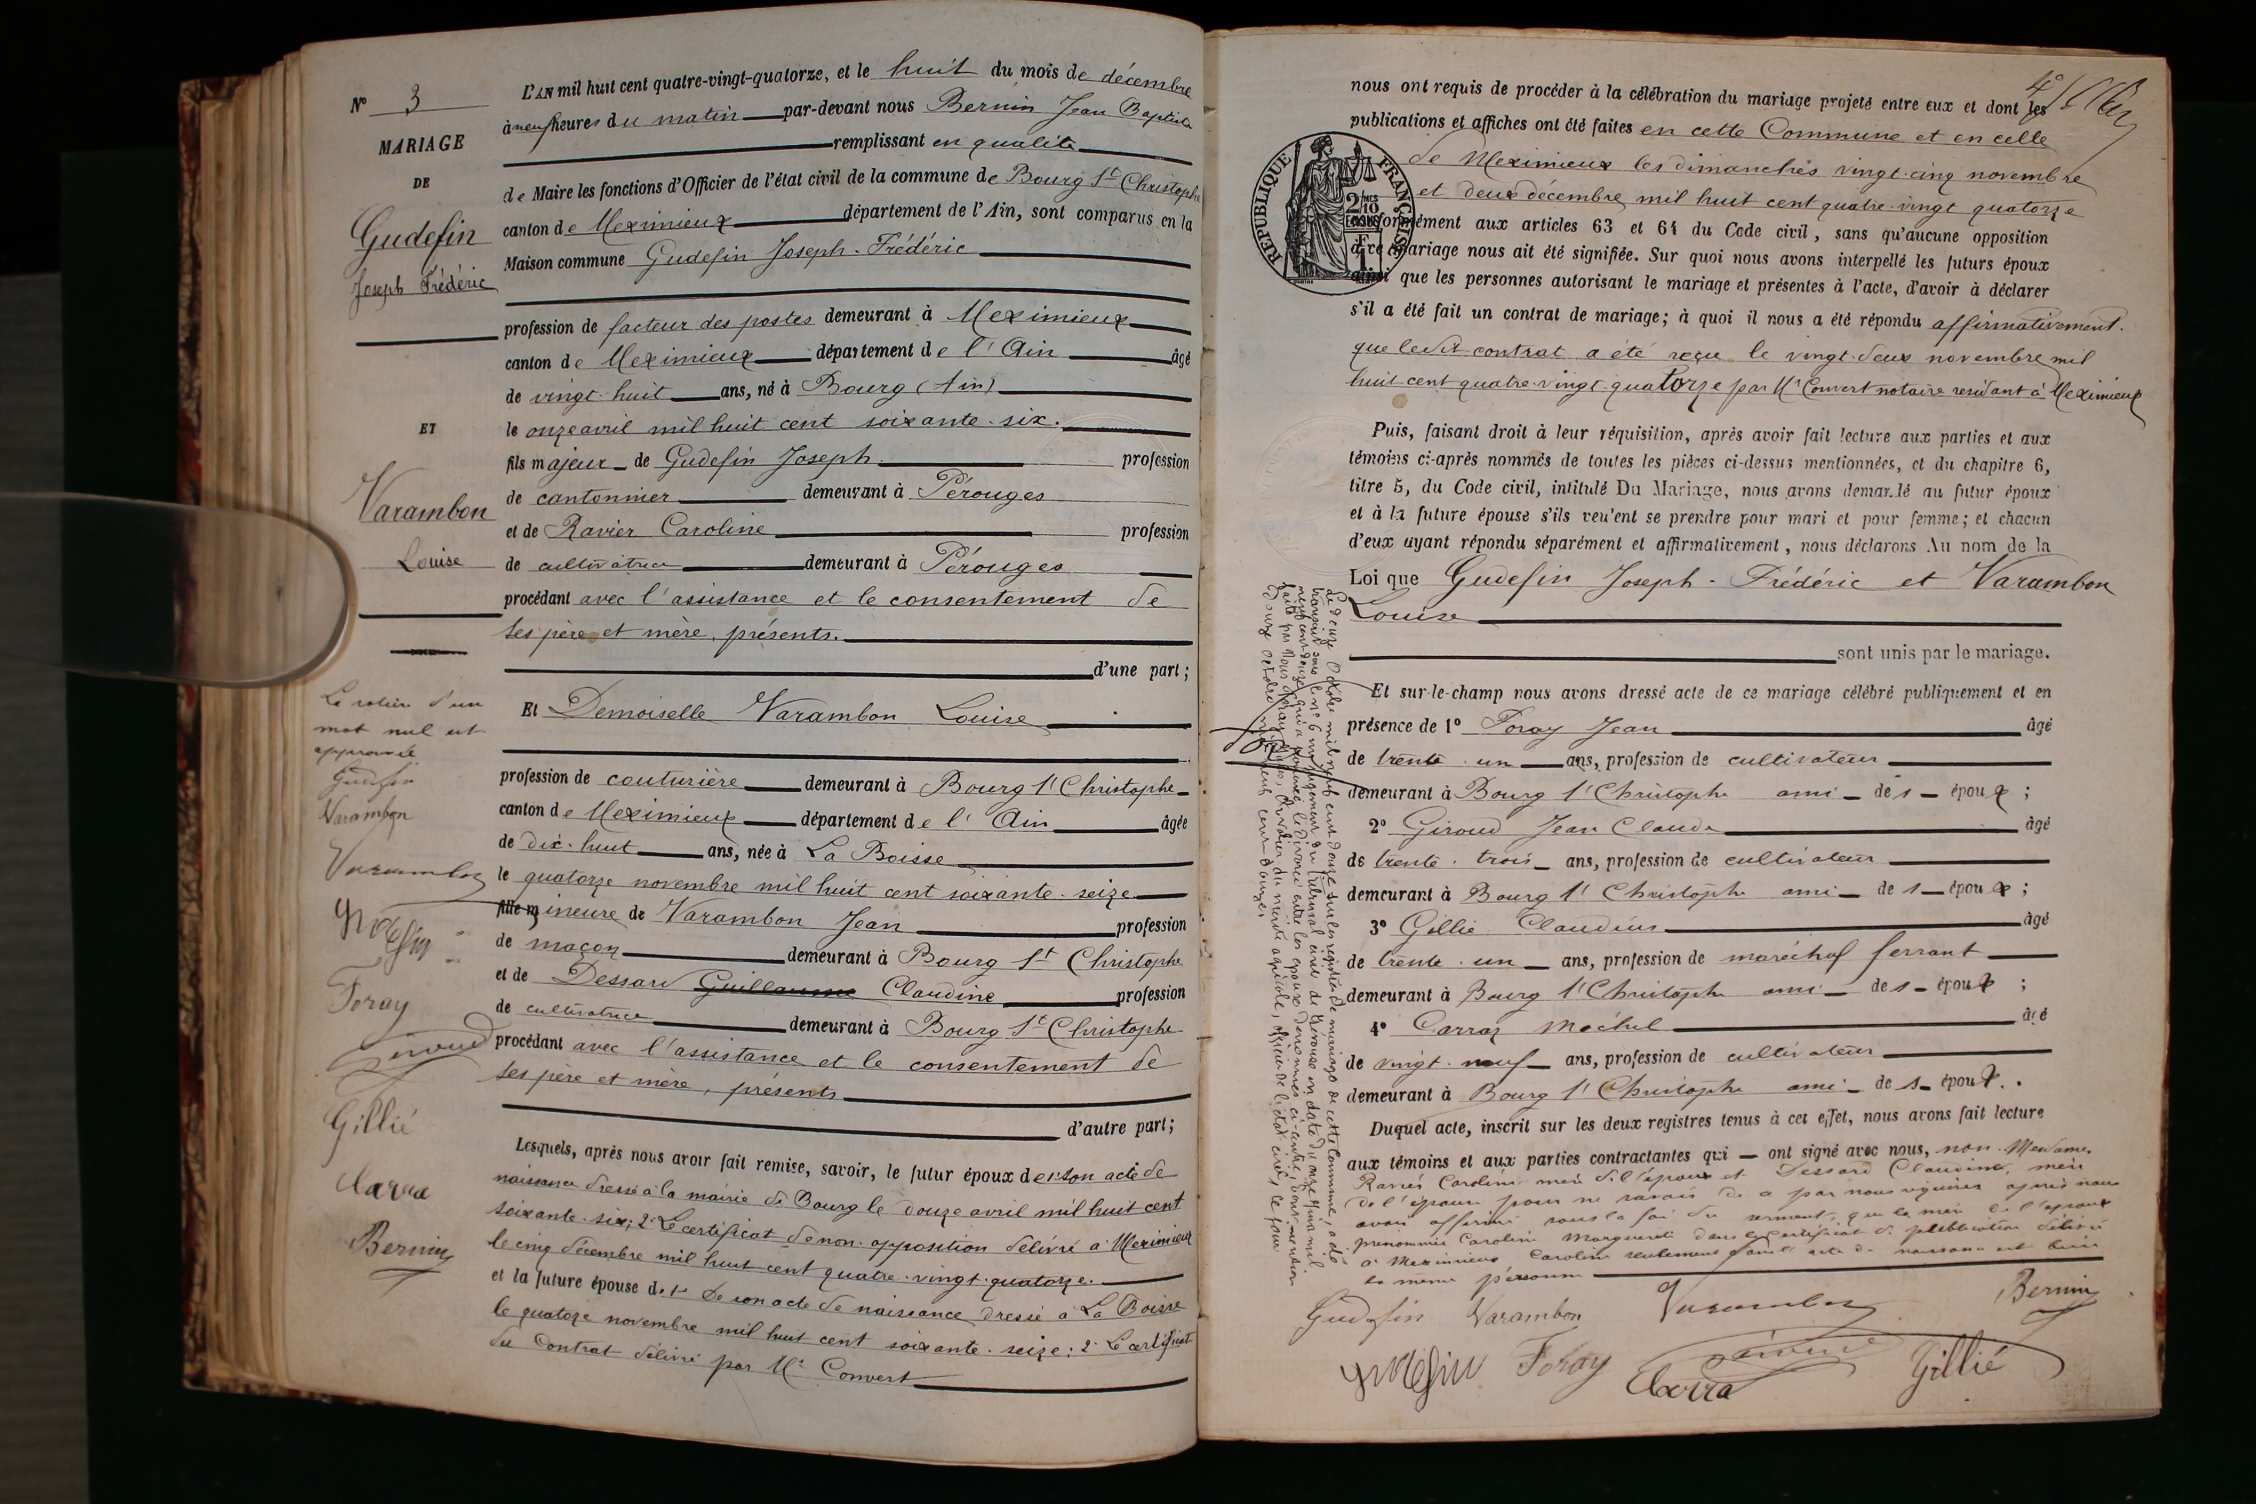 N° 3
MARIAGE
DE
Gudefin
Joseph Frédéric
ET
Varambon
Louise
La rature d'un
mot nul est
approuvée
Gudefin
Varambon
Gudefin
Foray
Giroud
Gillié
Carra
Bernin
L'AN mil huit cent quatre-vingt-quatorze, et le huit du mois de décembre
à neuf heures du matin par-devant nous Bernin Jean Baptiste
remplissant en qualité
de Maire les fonctions d'Officier de l'état civil de la commune de Bourg St Christophe
canton de Meximieux département de l'Ain, sont comparus en la
Maison commune Gudefin Joseph-Frédéric
profession de facteur des postes demeurant à Meximieux
canton de Meximieux département de l'Ain âgé
de vingt-huit ans, né à Bourg (Ain)
le onze avril mil huit cent soixante-six.
fils majeur de Gudefin Joseph profession
de cantonnier demeurant à Pérouges
et de Ravier Caroline profession
de cultivatrice demeurant à Pérouges
procédant avec l'assistance et le consentement de
ses père et mère, présents.
d'une part;
Et Demoiselle Varambon Louise
profession de couturière demeurant à Bourg St Christophe
canton de Meximieux département de l'Ain âgée
de dix-huit ans, née à La Boisse
le quatorze novembre mil huit cent soixante-seize
fille mineure de Varambon Jean profession
de maçon demeurant à Bourg St Christophe
et de Dessard Guillaume Claudine profession
de cultivatrice demeurant à Bourg St Christophe
procédant avec l'assistance et le consentement de
ses père et mère, présents
d'autre part;
Lesquels, après nous avoir fait remise, savoir, le futur époux de 1° son acte de
naissance dressé à la mairie de Bourg le douze avril mil huit cent
soixante-six; 2° Le certificat de non-opposition délivré à Meximieux
le cinq décembre mil huit cent quatre-vingt-quatorze.
et la future épouse de 1° De son acte de naissance dressé à La Boisse
le quatorze novembre mil huit cent soixante-seize: 2° Le certificat
du Contrat délivré par Me Convert
nous ont requis de procéder à la célébration du mariage projeté entre eux et dont les
publications et affiches ont été faites en cette Commune et en celle
de Meximieux les dimanches vingt-cinq novembre
et deux décembre mil huit cent quatre-vingt quatorze
conformément aux articles 63 et 64 du Code civil, sans qu'aucune opposition
à ce mariage nous ait été signifiée. Sur quoi nous avons interpellé les futurs époux
ainsi que les personnes autorisant le mariage et présentes à l'acte, d'avoir à déclarer
s'il a été fait un contrat de mariage; à quoi il nous a été répondu affirmativement.
que ledit contrat a été reçu le vingt-deux novembre mil
huit cent quatre-vingt-quatorze par Me Convert notaire résidant à Meximieux
RÉPUBLIQUE FRANÇAISE
Puis, faisant droit à leur réquisition, après avoir fait lecture aux parties et aux
témoins ci-après nommés de toutes les pièces ci-dessus mentionnées, et du chapitre 6,
titre 5, du Code civil, intitulé Du Mariage, nous avons demandé au futur époux
et à la future épouse s'ils veulent se prendre pour mari et pour femme; et chacun
d'eux ayant répondu séparément et affirmativement, nous déclarons Au nom de la
Loi que Gudefin Joseph-Frédéric et Varambon
Louise
sont unis par le mariage.
Et sur-le-champ nous avons dressé acte de ce mariage célébré publiquement et en
présence de 1° Foray Jean âgé
de trente-un ans, profession de cultivateur
demeurant à Bourg St Christophe ami des époux;
2° Giroud Jean Claude âgé
de trente-trois ans, profession de cultivateur
demeurant à Bourg St Christophe ami des époux;
3° Gillié Claudius âgé
de trente-un ans, profession de maréchal ferrant
demeurant à Bourg St Christophe ami des époux;
4° Carraz Michel âgé
de vingt-neuf ans, profession de cultivateur
demeurant à Bourg St Christophe ami des époux.
Duquel acte, inscrit sur les deux registres tenus à cet effet, nous avons fait lecture
aux témoins et aux parties contractantes qui ont signé avec nous, non Mesdames
Ravier Caroline mère de l'époux et Dessard Claudine, mère
de l'épouse pour ne savoir de ce par nous requises après nous
avoir affirmé sous la foi du serment, que la mère de l'époux
prénommée Caroline Marguerite dans le certificat de publication délivré
à Meximieux Caroline seulement dans l'acte de naissance est bien
la même personne
Gudefin Varambon Bernin
Gudefin Foray Giroud Gillié
Carra
Le douze Octobre mil neuf cent douze sur les registres de mariage de cette commune, a été
transcrit sous le n° 6 un jugement du tribunal civil de Trévoux en date du onze juin mil
neuf cent douze qui a prononcé le divorce entre les époux dénommés ci-contre, dont mention
faite par Nous officier de l'état civil, ce jour
douze octobre mil neuf cent douze.